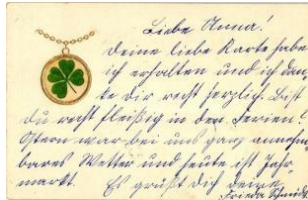 Liebe Anna!
Deine liebe Karte habe
ich erhalten und ich dan-
ke dir recht herzlich. Bist
du recht fleißig in den Ferien?
Ostern war bei uns ganz annehm-
bares Wetter und heute ist Jahr-
markt. Es grüßt dich deine
Frieda Schmidt